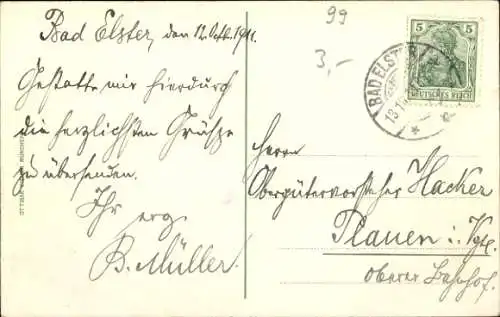 Bad Elster, den 12. Okt. 1911.
Gestatte mir hierdurch
die herzlichsten Grüße
zu übersenden.
Ihr erg.
B. Müller.
99
3,-
5 5
DEUTSCHES REICH
BAD ELSTER
13.1
Herrn
Obergütervorsteher Hacker
Plauen i. Vgtl.
oberer Bahnhof.